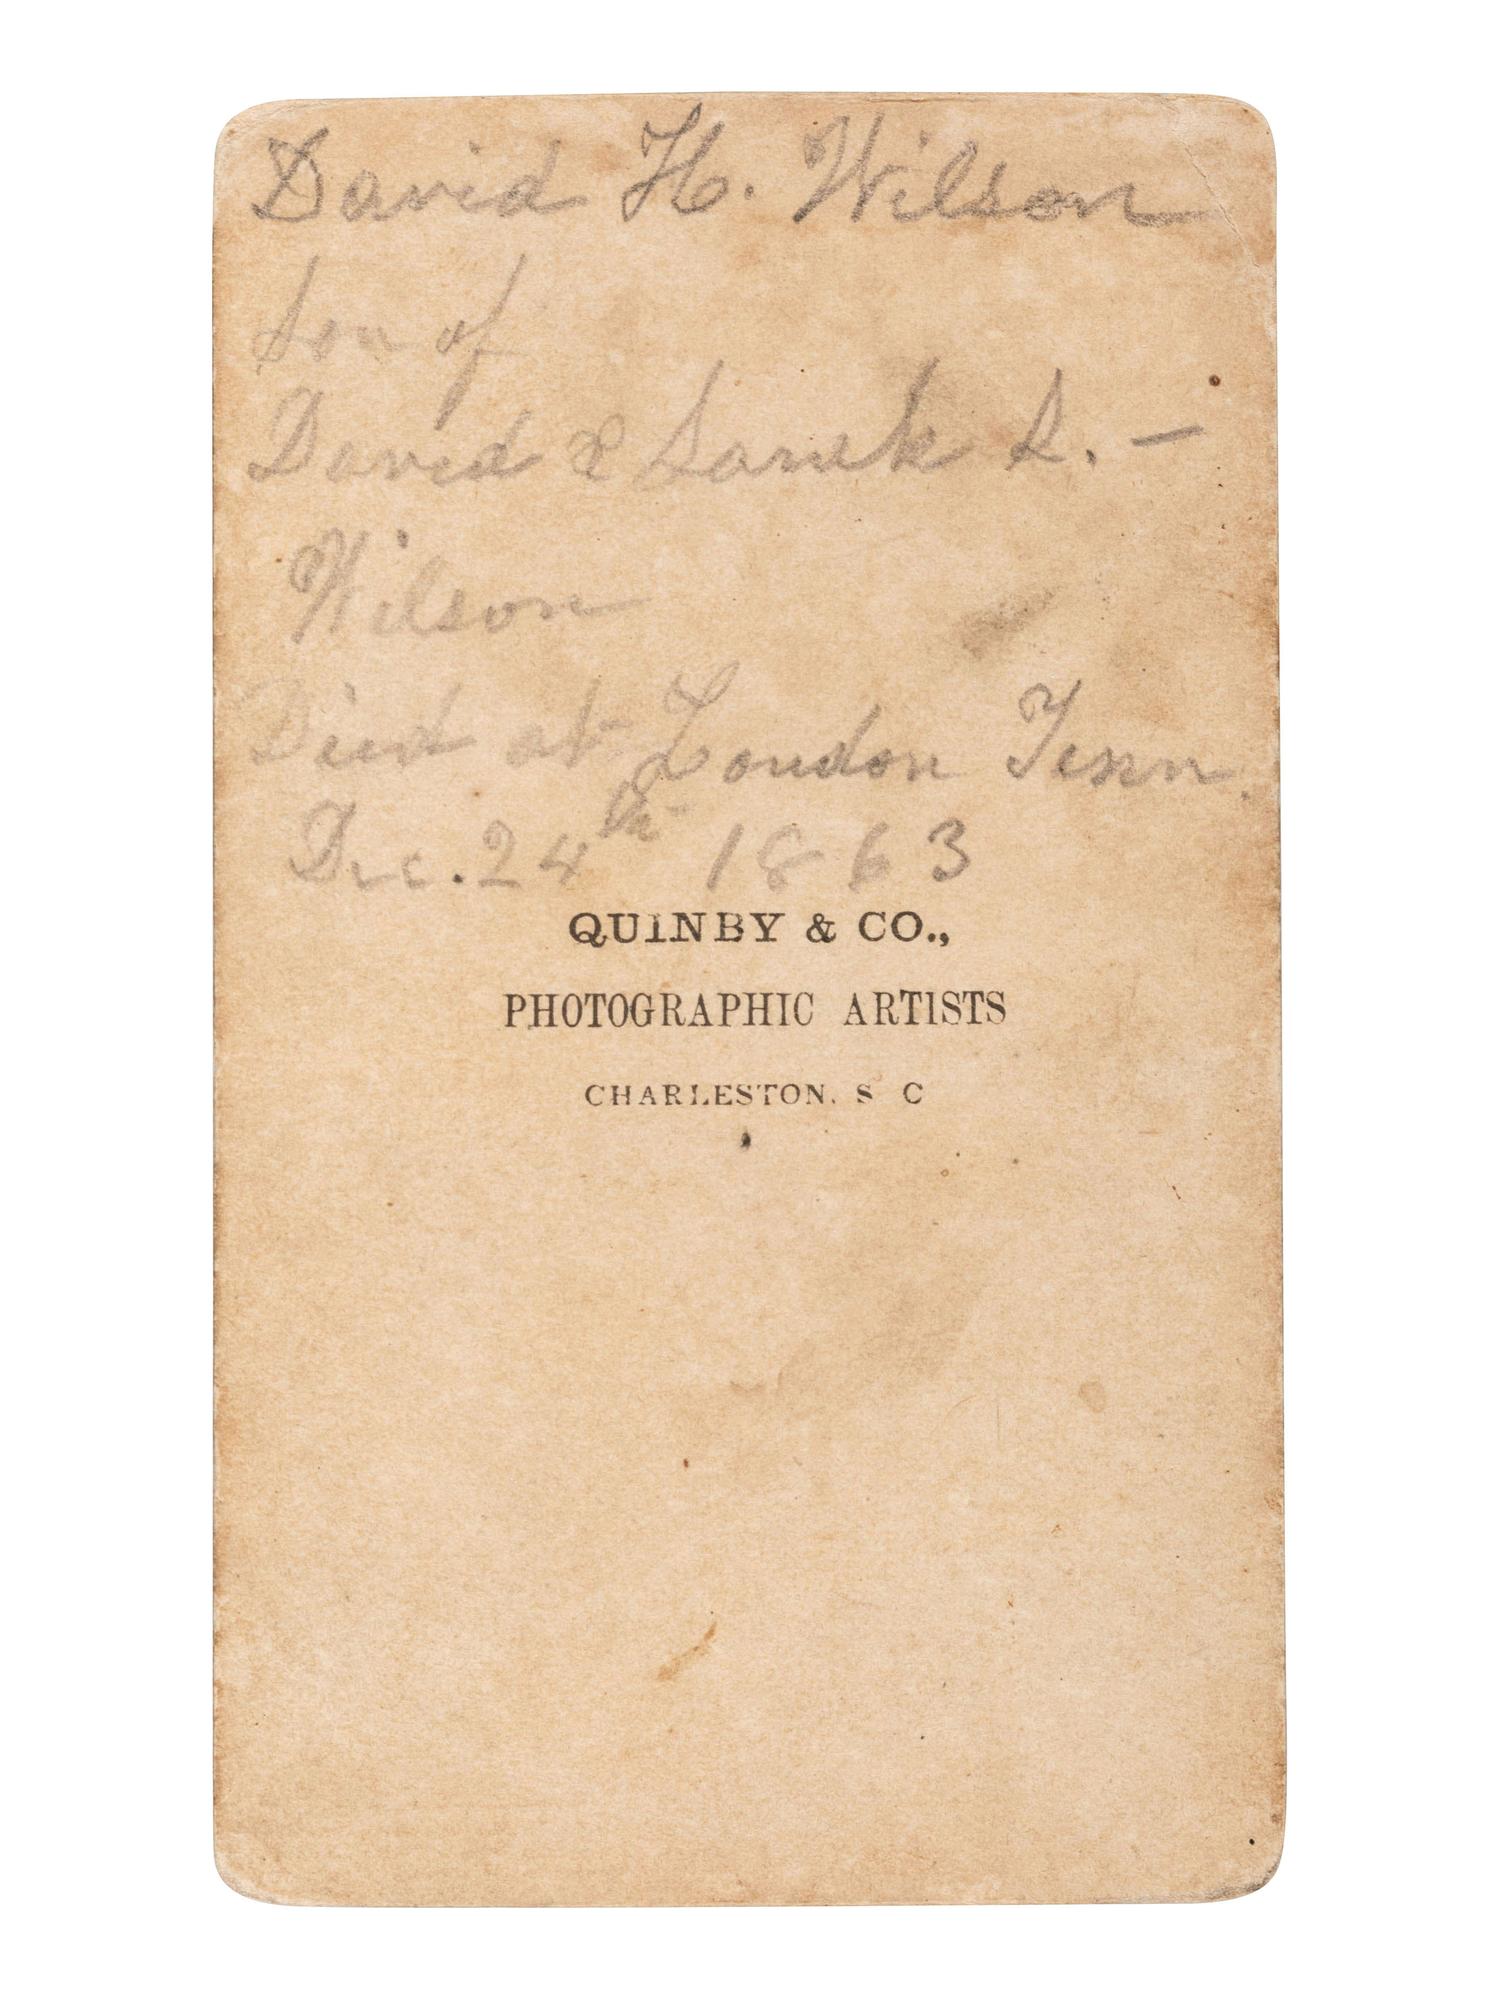 David H. Wilson
Son of
David & Sarah S. –
Wilson
Died at Loudon Tenn.
Dec. 24th 1863
QUINBY & CO.,
PHOTOGRAPHIC ARTISTS
CHARLESTON. S C